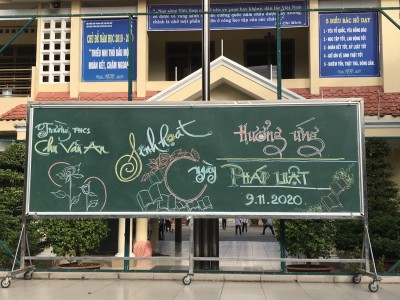 CHỦ ĐỀ NĂM HỌC 2019 - 20
"THIẾU NHI THỦ ĐẦU MỘ
ĐOÀN KẾT, CHĂM NGOAN
5 ĐIỀU BÁC HỒ DẠY
1 - YÊU TỔ QUỐC, YÊU ĐỒNG BÀO
2 - HỌC TẬP TỐT, LAO ĐỘNG TỐT
3 - ĐOÀN KẾT TỐT, KỶ LUẬT TỐT
4 - GIỮ GÌN VỆ SINH THẬT TỐT
5 - KHIÊM TỐN, THẬT THÀ, DŨNG CẢM.
Trường THCS
Chu Văn An
Sinh hoạt
Hưởng ứng
ngày
PHÁP LUẬT
9.11.2020